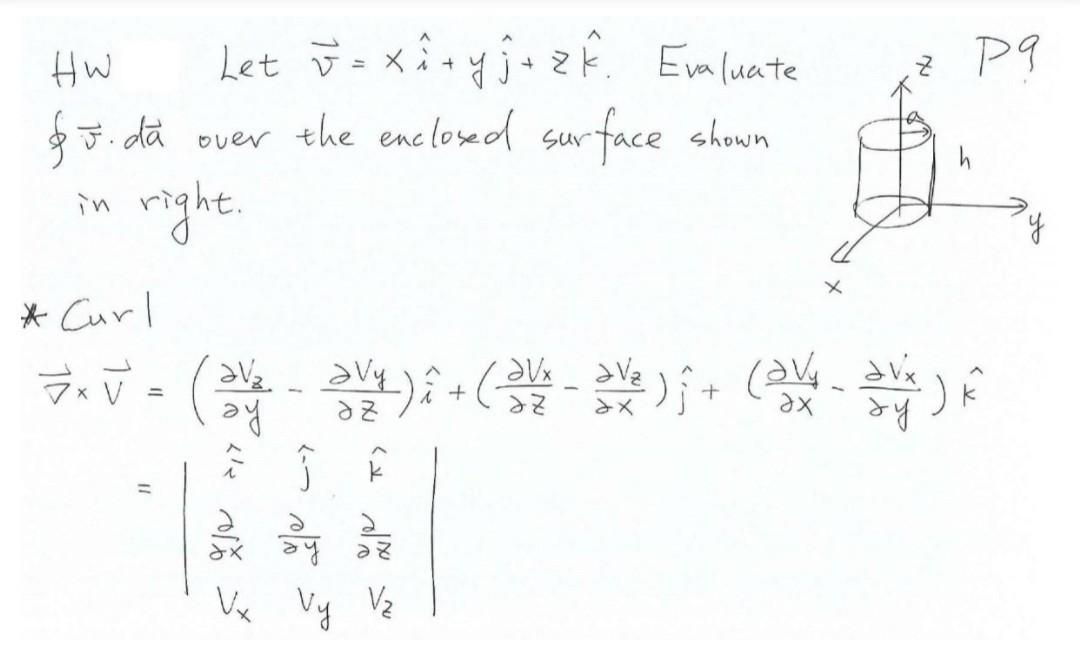 HW Let v⃗ = x î + y ĵ + z k̂. Evaluate
P9
∮ v⃗ · da⃗ over the enclosed surface shown
in right.
z
a
h
y
x
* Curl
∇⃗ × V⃗ = (∂Vz/∂y - ∂Vy/∂z) î + (∂Vx/∂z - ∂Vz/∂x) ĵ + (∂Vy/∂x - ∂Vx/∂y) k̂
= | î ĵ k̂ |
| ∂/∂x ∂/∂y ∂/∂z |
| Vx Vy Vz |